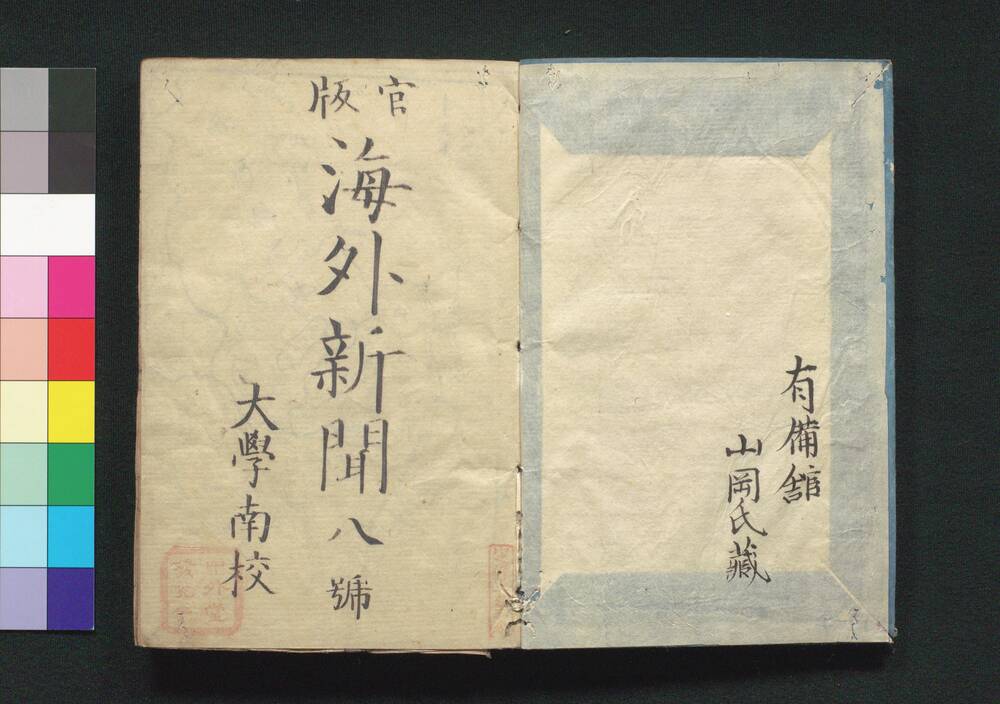 有備舘
山岡氏藏
官版
海外新聞八號
大學南校